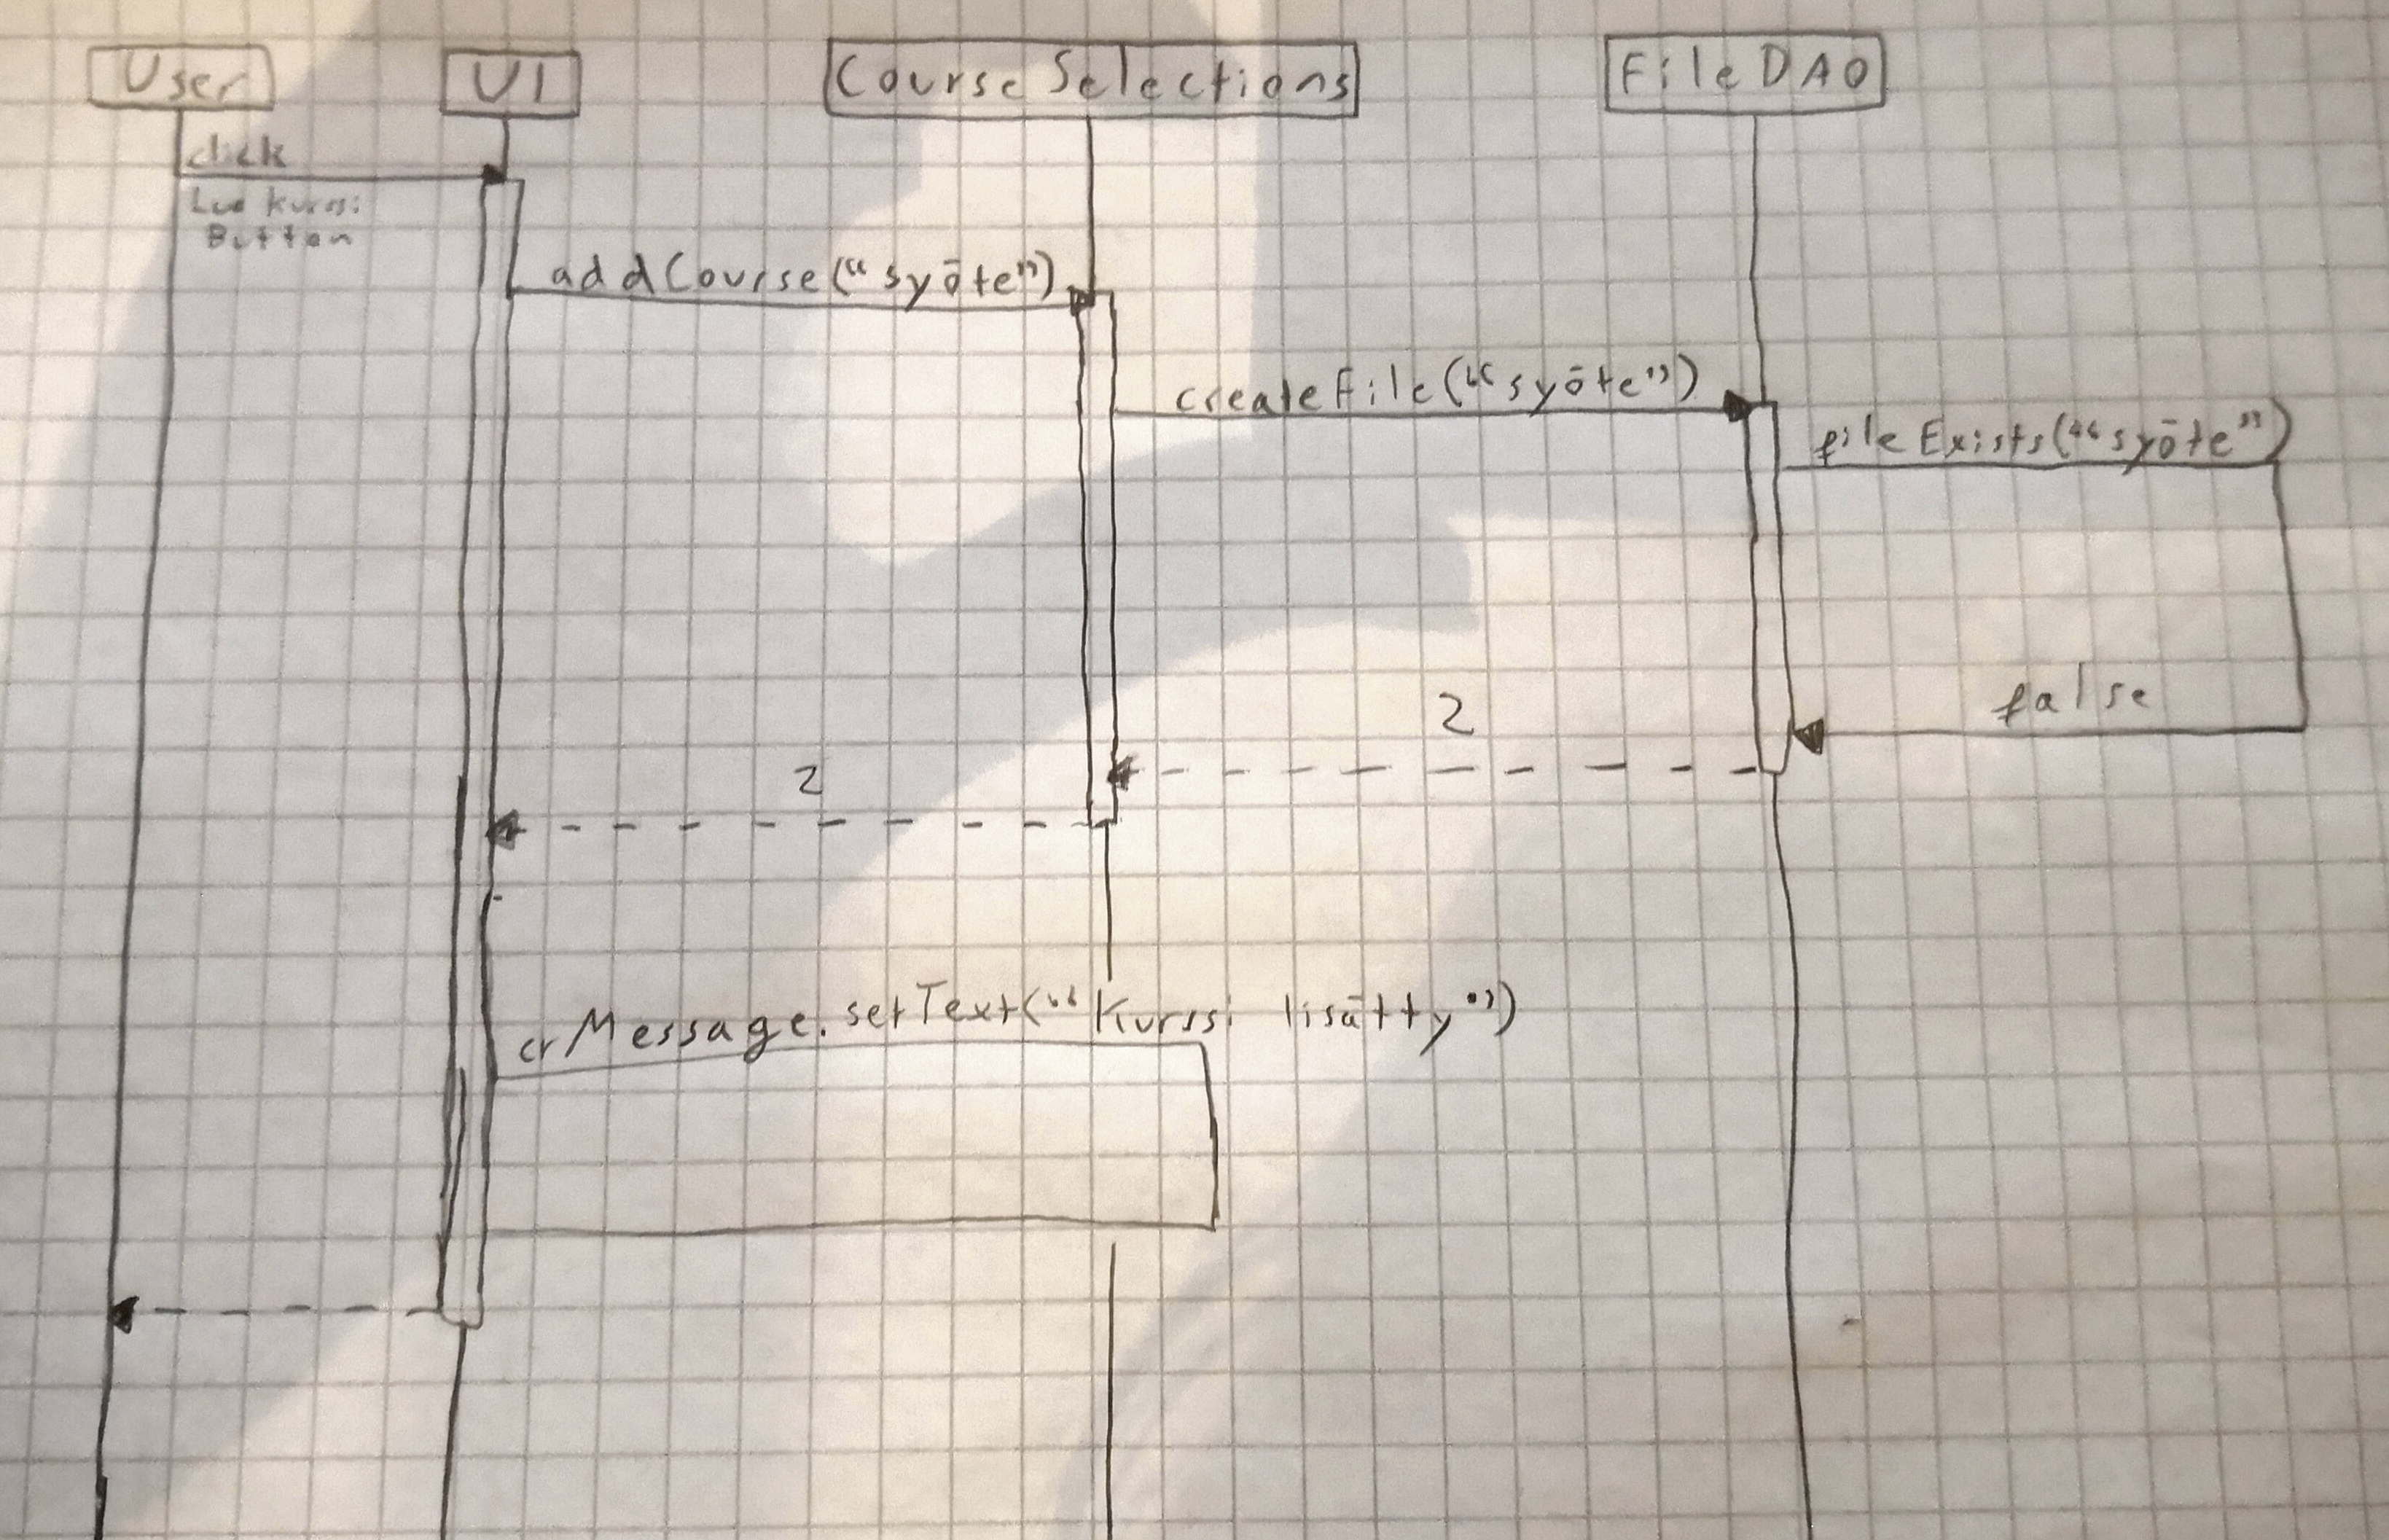 User
UI
CourseSelections
FileDAO
click
Luo kurssi
Button
addCourse("syöte")
createFile("syöte")
fileExists("syöte")
false
2
2
crMessage.setText("Kurssi lisätty")